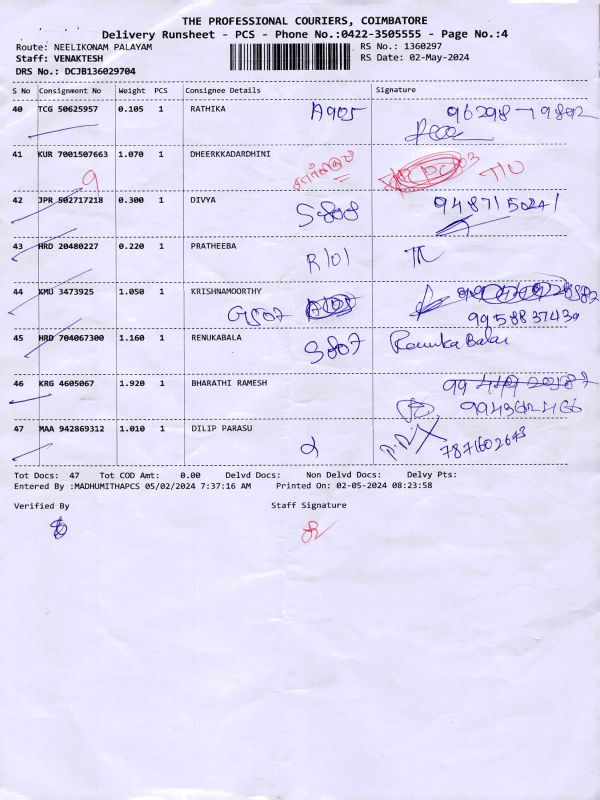 THE PROFESSIONAL COURIERS, COIMBATORE
Delivery Runsheet - PCS - Phone No.:0422-3505555 - Page No.:4
Route: NEELIKONAM PALAYAM RS No.: 1360297
Staff: VENAKTESH RS Date: 02-May-2024
DRS No.: DCJB136029704
S No Consignment No Weight PCS Consignee Details Signature
40 TCG 50625957 0.105 1 RATHIKA A905 96298-19892
41 KUR 7001507663 1.070 1 DHEERKKADARDHINI
9
42 JPR 502717218 0.300 1 DIVYA S808 9487150241
43 HRD 20480227 0.220 1 PRATHEEBA R101
44 KMU 3473925 1.050 1 KRISHNAMOORTHY
G507 9958837430
45 HRD 704067300 1.160 1 RENUKABALA S807 Renuka Balai
46 KRG 4605067 1.920 1 BHARATHI RAMESH
47 MAA 942869312 1.010 1 DILIP PARASU 7871602643
Tot Docs: 47 Tot COD Amt: 0.00 Delvd Docs: Non Delvd Docs: Delvy Pts:
Entered By :MADHUMITHAPCS 05/02/2024 7:37:16 AM Printed On: 02-05-2024 08:23:58
Verified By Staff Signature